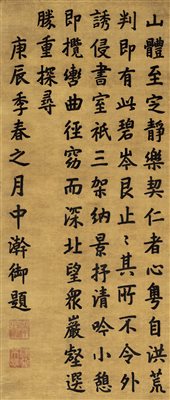 山體至定靜樂契仁者心粵自洪荒
判即有此碧岑艮止〻其所不令外
誘侵書室祇三架納景抒清吟小憩
即攬轡曲徑窈而深北望眾巖壑選
勝重探尋
庚辰季春之月中澣御題